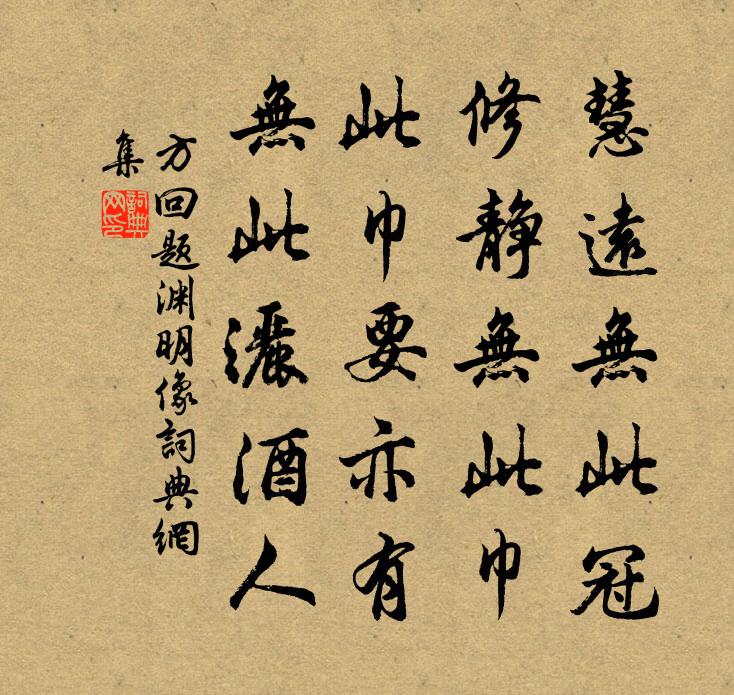 慧遠無此冠
修静無此巾
此巾要亦有
無此灑酒人
方回题渊明像詞典網
集
詞典网印